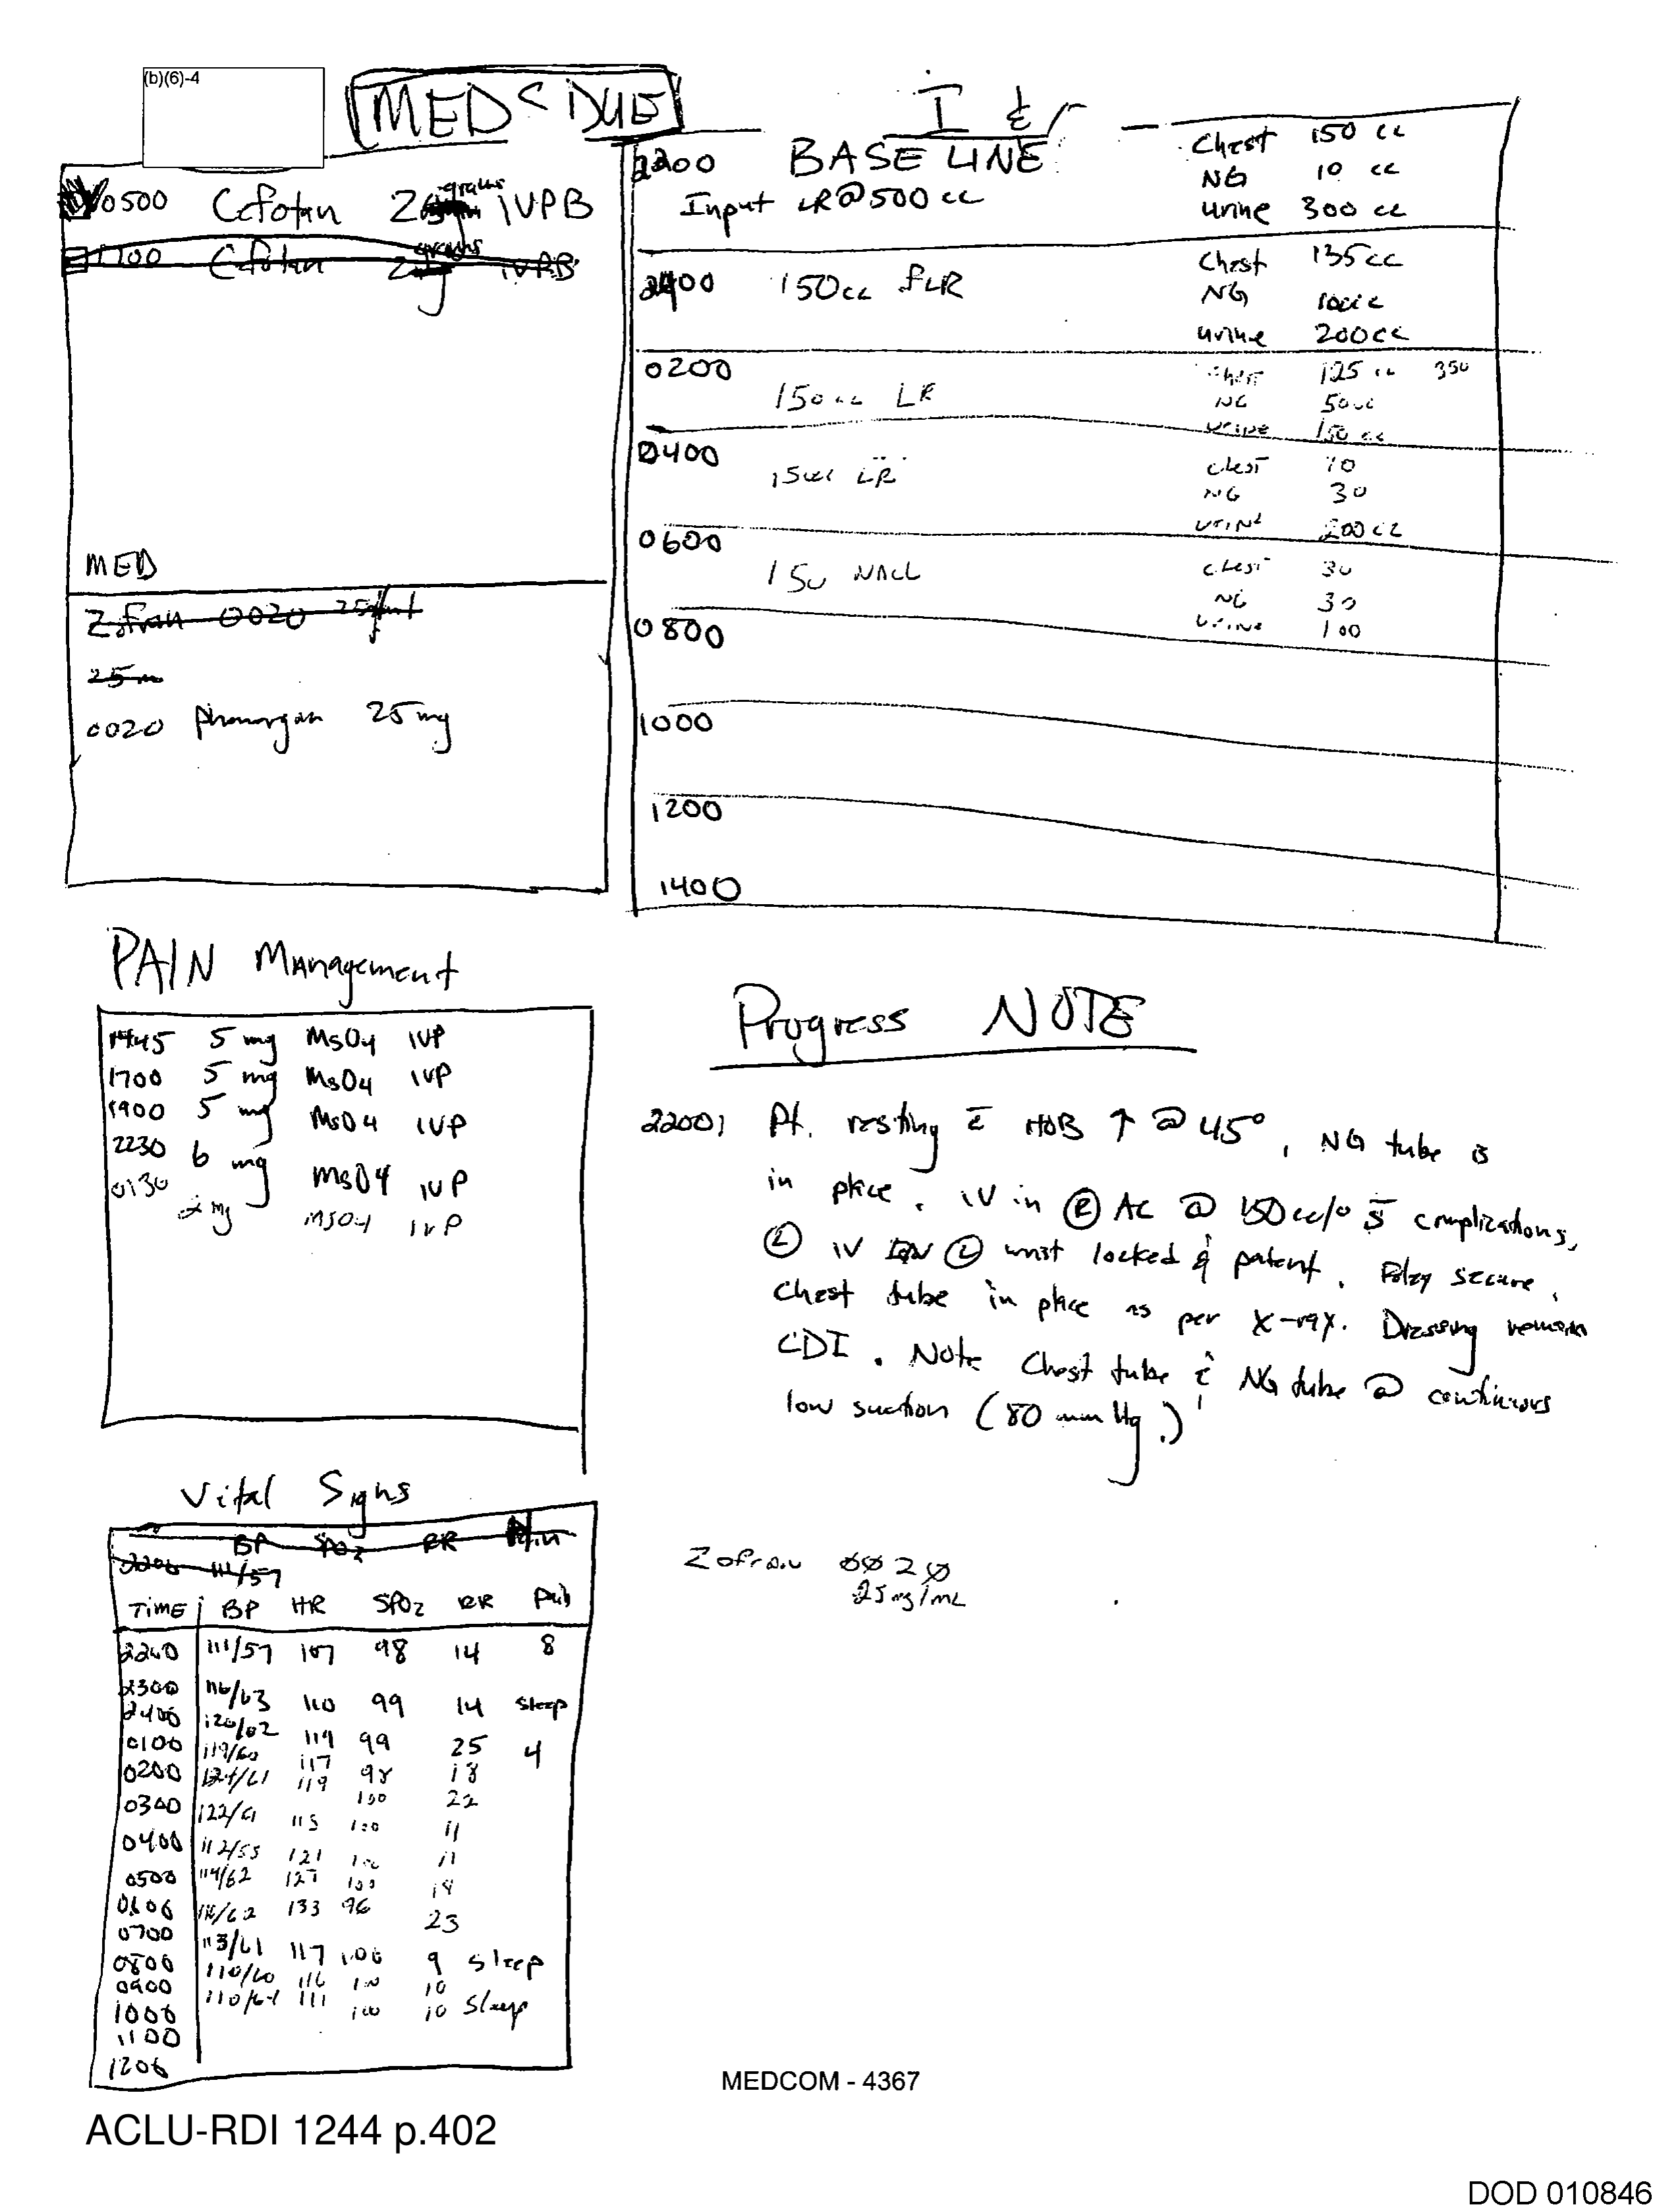 (b)(6)-4
MEDS DUE
0500 Cefotan 2 grams IVPB
1700 Cefotan 2 grams IVPB
MED
Zofran 0020
25m
0020 phenergan 25 mg
I &
2200 BASE LINE Chest 150 cc
Input LR @ 500 cc NG 10 cc
urine 300 cc
2400 150cc LR Chest 135cc
NG
urine 200cc
0200 150cc LR Chest 125 cc 350
NG 50cc
urine 150 cc
0400 150cc LR chest 70
NG 30
urine 200cc
0600 150 NACL chest 30
NG 30
urine 100
0800
1000
1200
1400
PAIN Management
1445 5 mg MsO4 IVP
1700 5 mg MsO4 IVP
1900 5 mg MsO4 IVP
2230 6 mg MsO4 IVP
0130 2mg MSO4 IVP
Progress NOTE
2200; Pt. resting c̄ HOB ↑ @ 45°, NG tube is
in place. IV in Ⓡ AC @ 150cc/° s̄ complications,
Ⓛ IV Ⓛ wrist locked & patent. Foley secure,
Chest tube in place as per X-ray. Dressing remain
CDI. Note Chest tube & NG tube @ continuous
low suction (80 mm Hg.)
Zofran 0020
25mg/mL
Vital Signs
BP SPO2 RR Pain
2200 111/57
TIME BP HR SPO2 RR Pain
2240 111/57 107 98 14 8
2300 116/63 110 99 14 sleep
2400 120/62 119 99 25 4
0100 119/60 117 98 18
0200 124/61 119 100 22
0300 122/61 115 100 11
0400 112/55 121 100 11
0500 114/62 127 100 14
0600 116/62 133 96 23
0700 113/61 117 100 9 sleep
0800 110/60 116 100 10
0900 110/64 111 100 10 sleep
1000
1100
1200
MEDCOM - 4367
ACLU-RDI 1244 p.402
DOD 010846